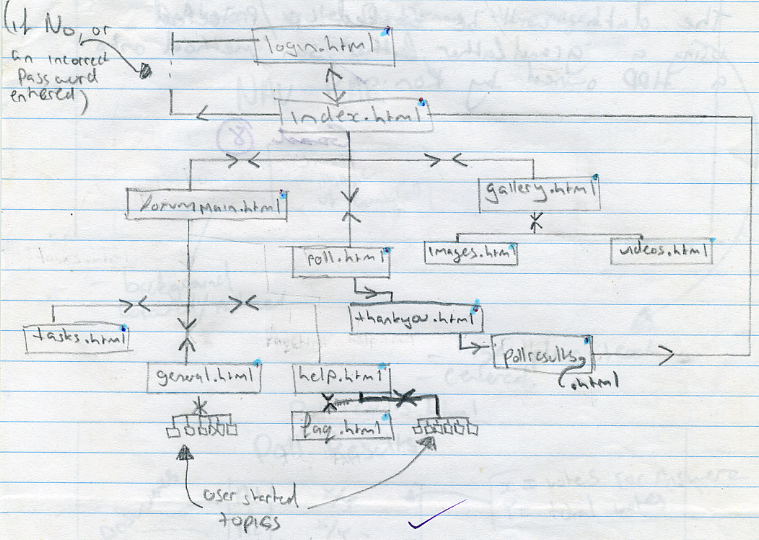 (if No, or
an incorrect
password
entered)
login.html
index.html
forummain.html
gallery.html
poll.html
images.html
videos.html
tasks.html
thankyou.html
pollresults
.html
general.html
help.html
faq.html
user started
topics